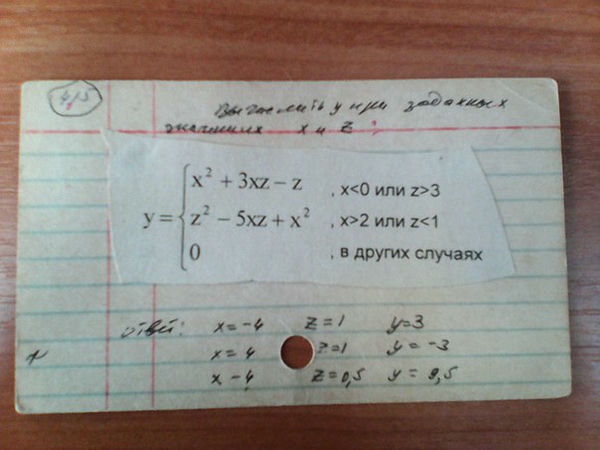 4,5
Вычислить y при заданных
значениях x и z :
y = { x² + 3xz – z , x<0 или z>3
z² – 5xz + x² , x>2 или z<1
0 , в других случаях
ответ: x=-4 z=1 y=3
x=4 z=1 y=-3
x-4 z=0,5 y=9,5